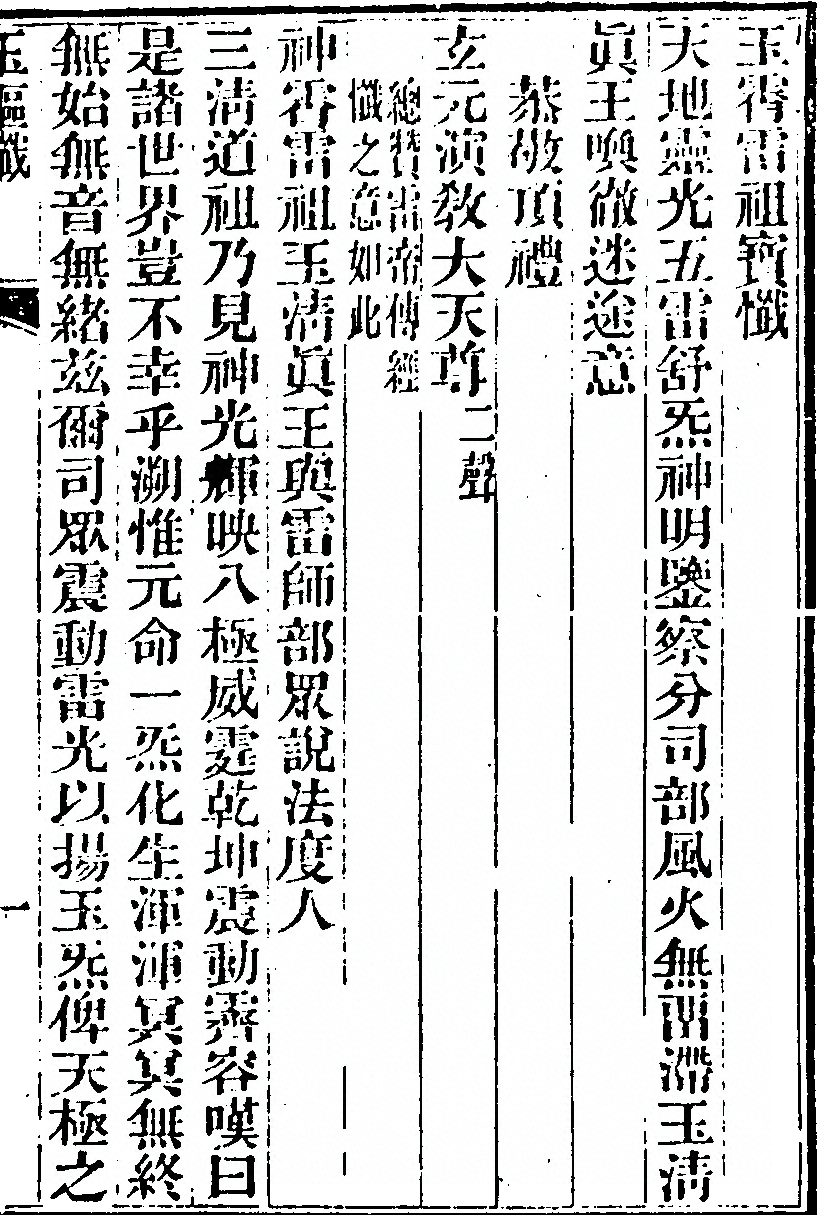 玉霄雷祖寶懺
天地靈光五雷舒炁神明鑒察分司部風火無留滯玉淸
眞王喚徹迷途意
恭敬頂禮
玄元演敎大天尊二聲
總贊雷帝傳經
懺之意如此
神霄雷祖玉淸眞王與雷師部眾說法度人
三淸道祖乃見神光輝映八極威霆乾坤震動霽容嘆曰
是諸世界豈不幸乎溯惟元命一炁化生渾渾冥冥無終
無始無音無緒茲爾司眾震動雷光以揚玉炁俾天極之
玉樞懺
一